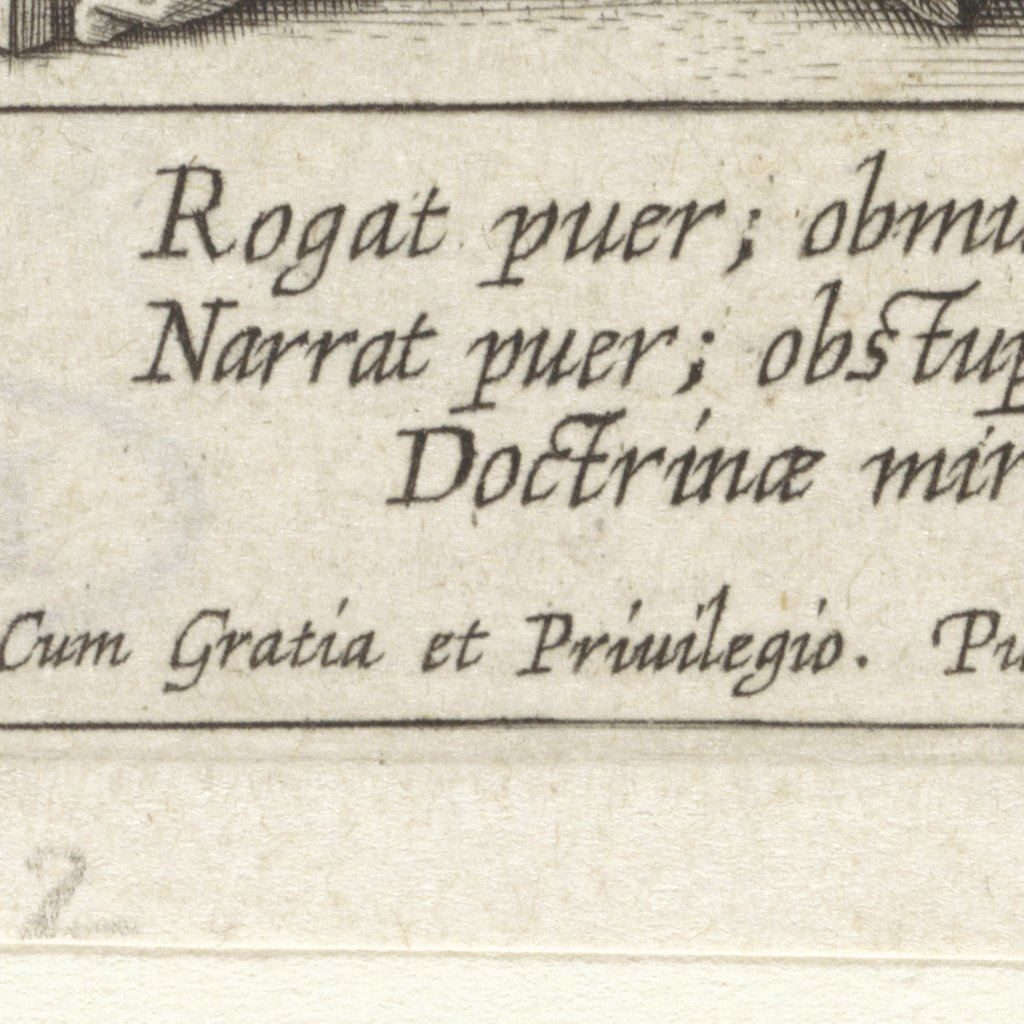 Rogat puer; obmu
Narrat puer; obstup
Doctrinæ mir
Cum Gratia et Priuilegio. Pu
2